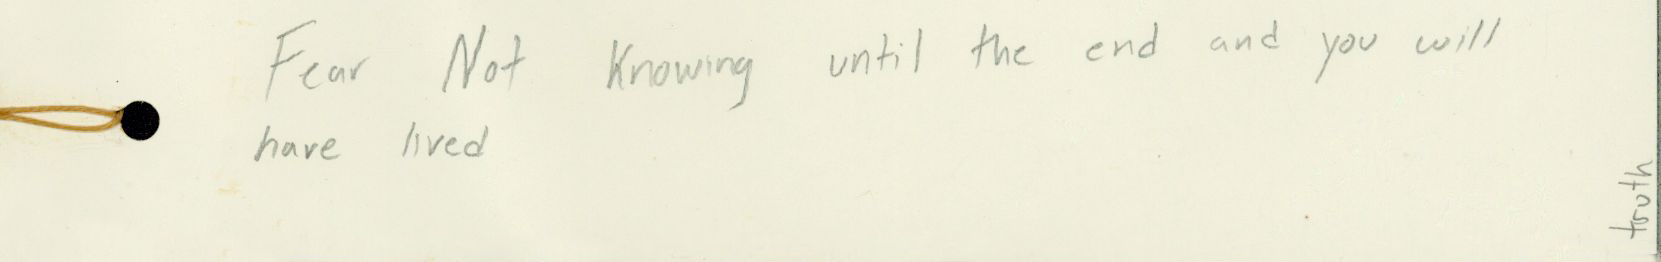 Fear Not Knowing until the end and you will
have lived
truth